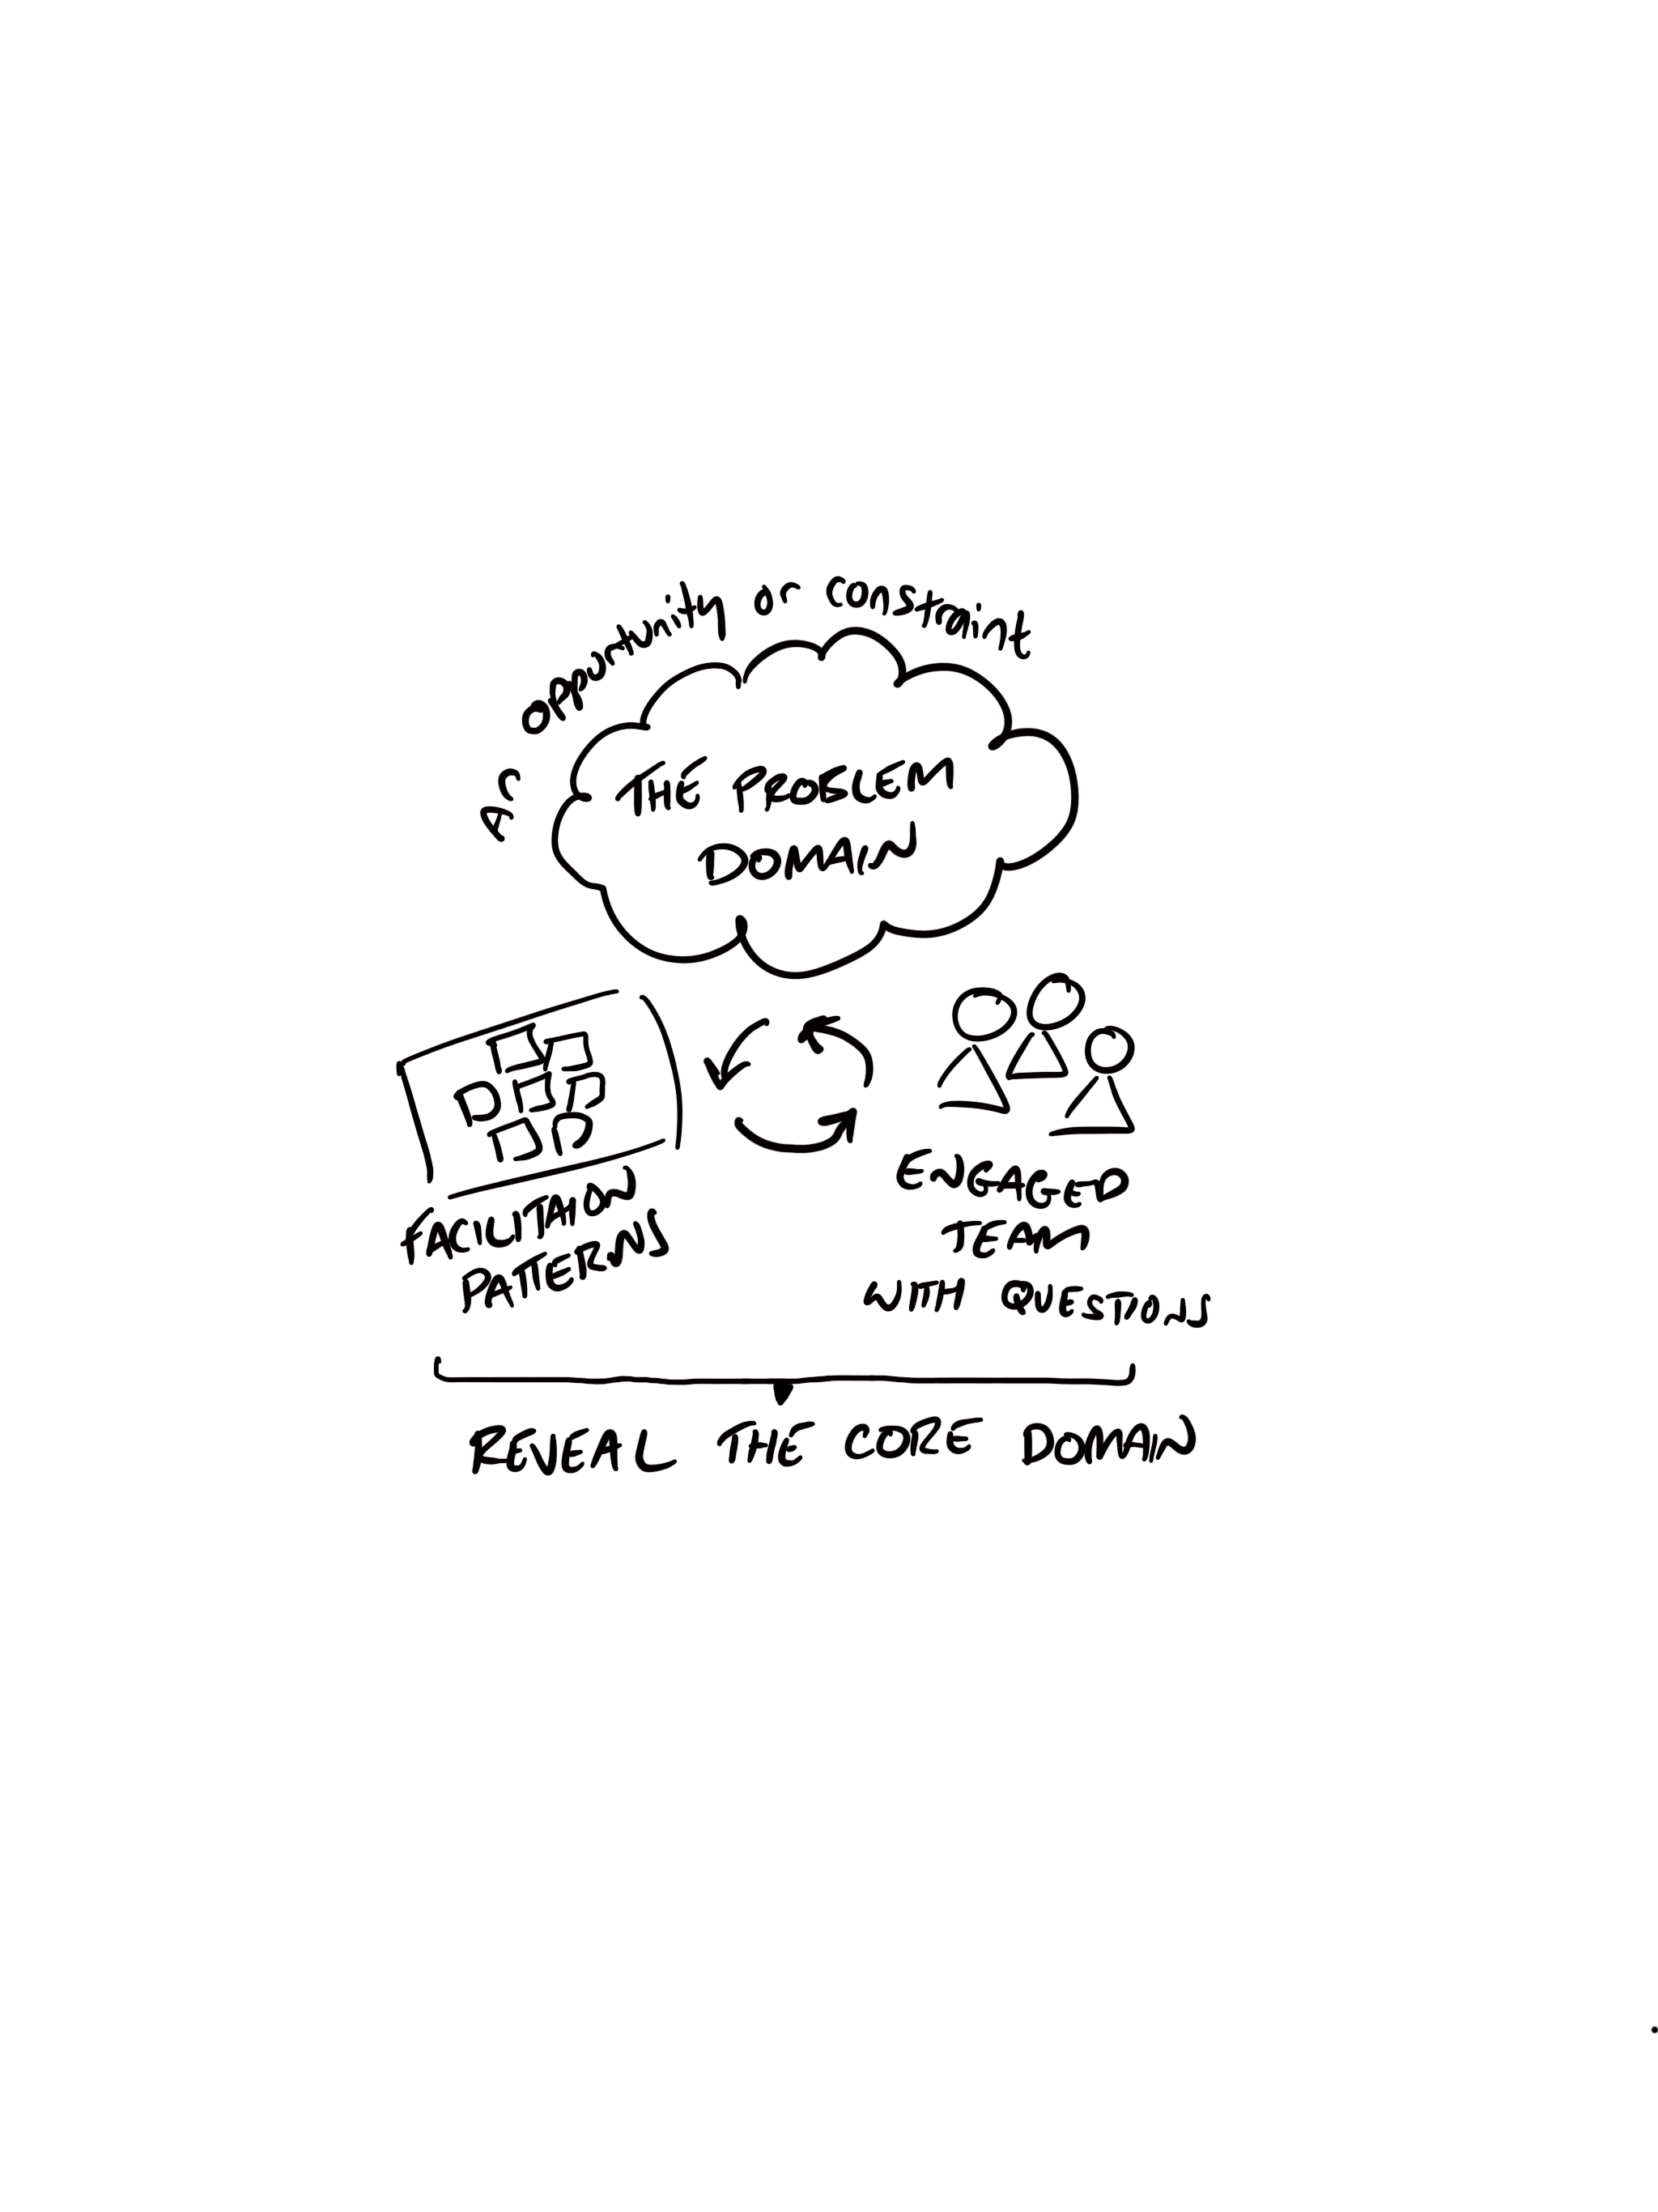 An opportunity or constraint
THE PROBLEM
DOMAIN
FACILITATION
PATTERNS
ENGAGED
TEAM
WITH QUESTIONS
REVEAL THE CORE DOMAIN